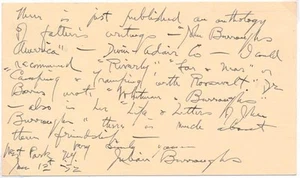 there is just published an anthology
of father's writings — John Burroughs
America" — Devin Adair Co — I could
recommend "Riverby" — "far + near" or
"Camping + Tramping with Roosevelt". Dr
Barus wrote "Whitman + Burroughs"
— also in her "Life + Letters of John
Burroughs" there is much about
their friendship —
very truly yours
West Park N.Y.
Jan 1st - 52
Julian Burroughs